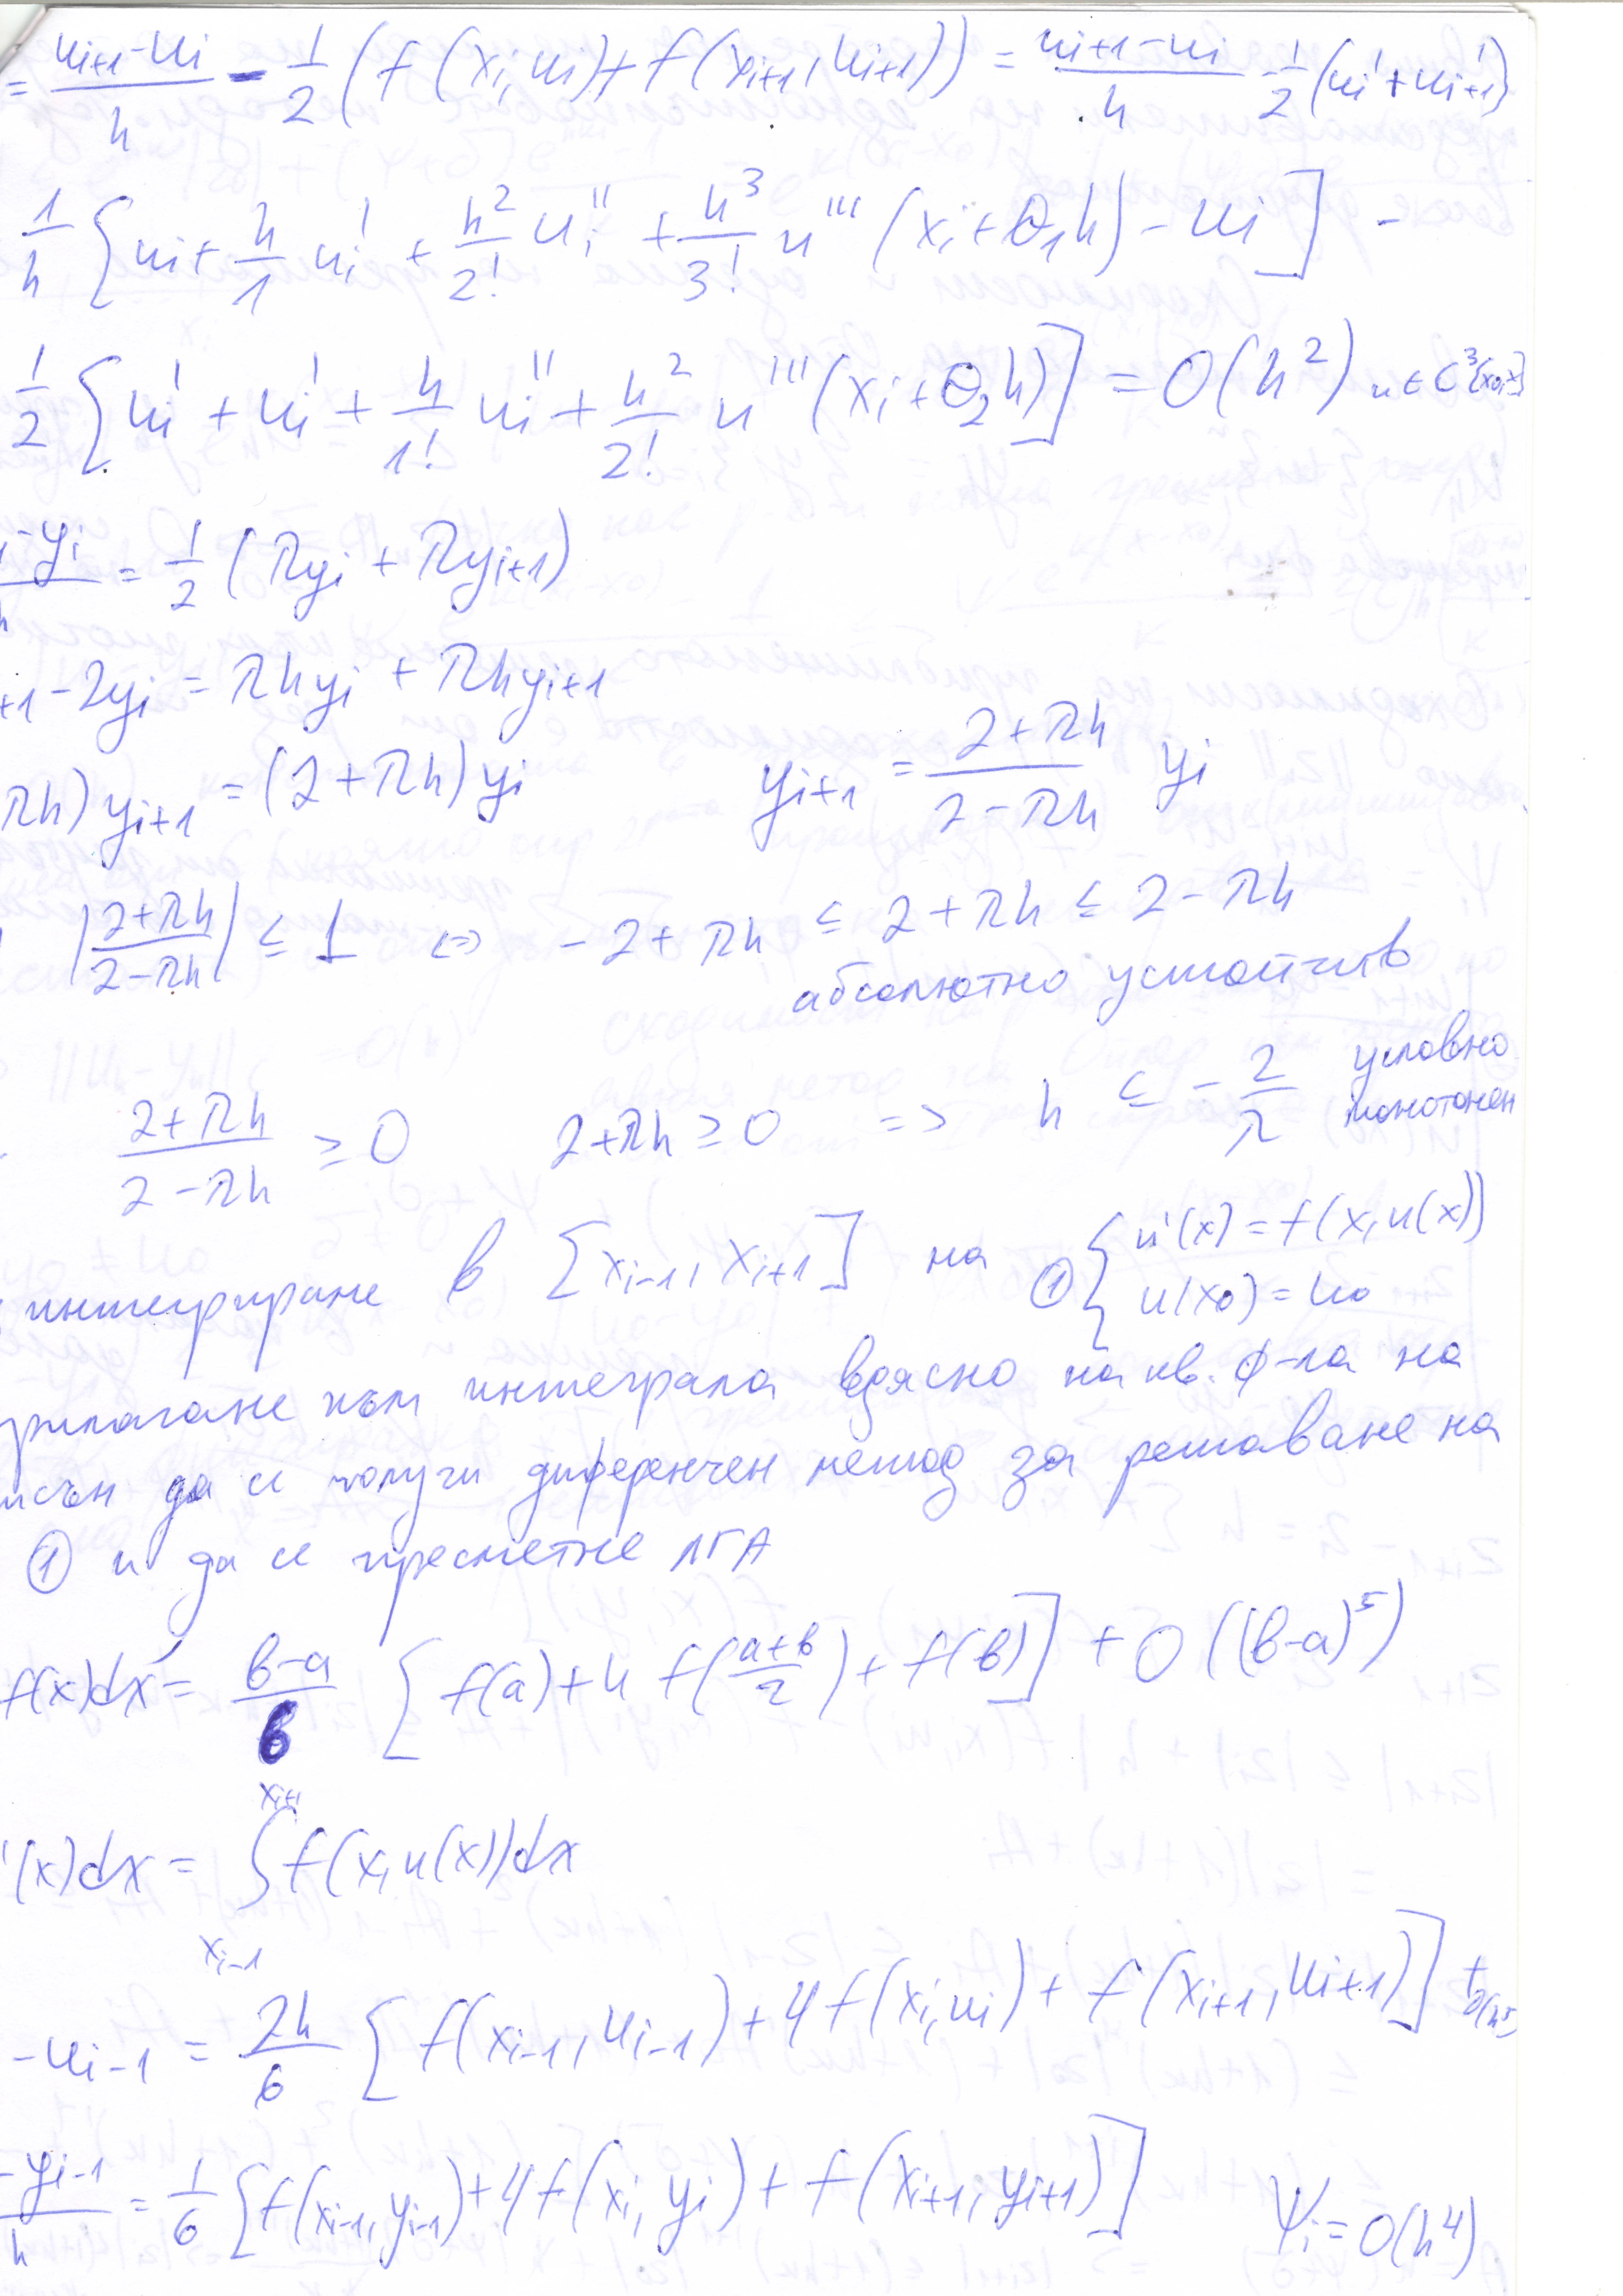 = (u_{i+1} - u_i)/h - 1/2 (f(x_i, u_i) + f(x_{i+1}, u_{i+1})) = (u_{i+1} - u_i)/h - 1/2 (u_i' + u_{i+1}')
1/h [u_i + h/1 u_i' + h^2/2! u_i'' + h^3/3! u''' (x_i + θ_1 h) - u_i] -
1/2 [u_i' + u_i' + h/1! u_i'' + h^2/2! u''' (x_i + θ_2 h)] = O(h^2) u ∈ C^3
- y_i / h = 1/2 (λy_i + λy_{i+1})
+1 - 2y_i = λhy_i + λhy_{i+1}
λh) y_{i+1} = (2 + λh) y_i y_{i+1} = (2 + λh)/(2 - λh) y_i
|(2 + λh)/(2 - λh)| ≤ 1 <=> -2 + λh ≤ 2 + λh ≤ 2 - λh
абсолютно устойчив
(2 + λh)/(2 - λh) ≥ 0 2 + λh ≥ 0 => h ≤ - 2/λ условно монотонен
интегриране в [x_{i-1}, x_{i+1}] на ① { u'(x) = f(x, u(x))
u(x_0) = u_0
прилагане към интеграла вдясно на кв. ф-ла на
да се получи диференчен метод за решаване на
① и да се пресметне ЛГА
f(x)dx = (b-a)/6 [f(a) + 4 f((a+b)/2) + f(b)] + O((b-a)^5)
'(x)dx = ∫_{x_{i-1}}^{x_{i+1}} f(x, u(x))dx
- u_{i-1} = 2h/6 [f(x_{i-1}, u_{i-1}) + 4f(x_i, u_i) + f(x_{i+1}, u_{i+1})] + O(h^5)
- y_{i-1} / h = 1/6 [f(x_{i-1}, y_{i-1}) + 4f(x_i, y_i) + f(x_{i+1}, y_{i+1})] Ψ_i = O(h^4)